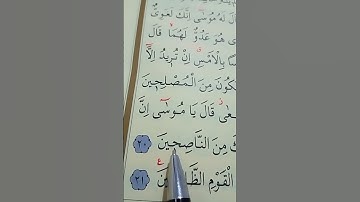 قَالَ لَهُ مُوسٰٓى اِنَّكَ لَغَوِىٌّ
هُوَ عَدُوٌّ لَهُمَاۙ قَالَ
بِالْاَمْسِۗ اِنْ تُر۪يدُ اِلَّٓا
تَكُونَ مِنَ الْمُصْلِح۪ينَ
قَالَ يَا مُوسٰٓى اِنَّ
مِنَ النَّاصِح۪ينَ ﴿٢٠﴾
الْقَوْمِ الظَّالِم۪ينَ ﴿٢١﴾